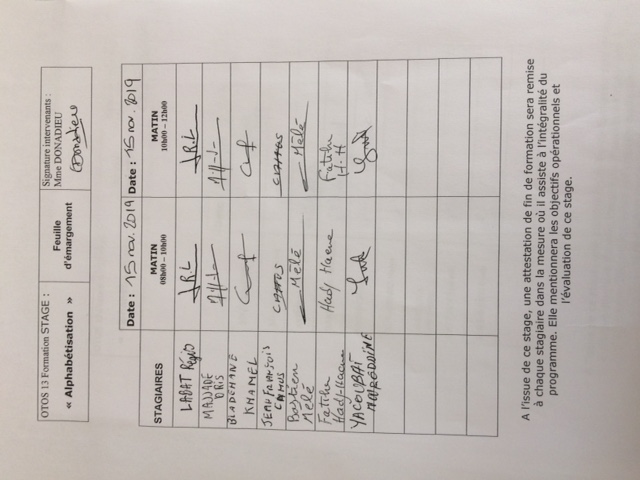 OTOS 13 Formation STAGE :
« Alphabétisation »
Feuille
d'émargement
Signature intervenants :
Mme DONADIEU
Donadieu
Date : 15 nov. 2019
Date : 15 nov. 2019
STAGIAIRES
MATIN
08h00 – 10h00
MATIN
10h00 – 12h00
LABAT Régis
J.R.L
J.R.L
DRIS
KHAMEL
JEAN FRANÇOIS
CAMUS
CAMUS
CAMUS
Bastien
Mélé
Mélé
Mélé
Fatiha
Hadj Hacene
Hadj Hacene
Fatiha
H-H
YACOUBAÏ
NOUREDDINE
A l'issue de ce stage, une attestation de fin de formation sera remise
à chaque stagiaire dans la mesure où il assiste à l'intégralité du
programme. Elle mentionnera les objectifs opérationnels et
l'évaluation de ce stage.